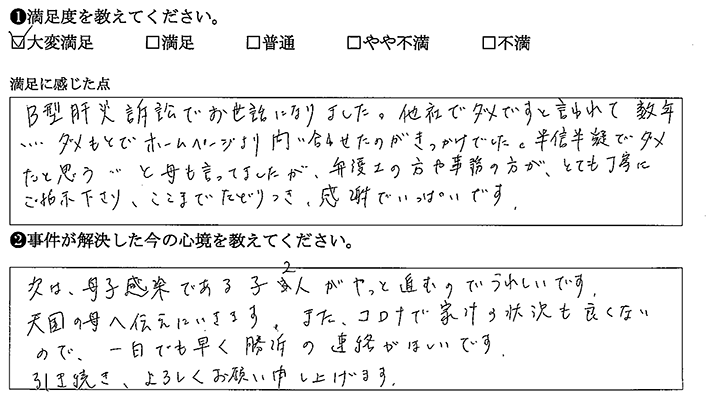 ❶満足度を教えてください。
☑大変満足 □満足 □普通 □やや不満 □不満
満足に感じた点
B型肝炎訴訟でお世話になりました。他社でダメですと言われて数年
…. ダメもとでホームページより問い合わせたのがきっかけでした。半信半疑でダメ
だと思う…と母も言ってましたが、弁護士の方や事務の方が、とても丁寧に
ご指示下さり、ここまでたどりつき、感謝でいっぱいです.
❷事件が解決した今の心境を教えてください。
次は、母子感染である子2人がやっと進むのでうれしいです.
天国の母へ伝えにいきます. また、コロナで家計の状況も良くない
ので、一日でも早く勝訴の連絡がほしいです.
引き続き、よろしくお願い申し上げます.